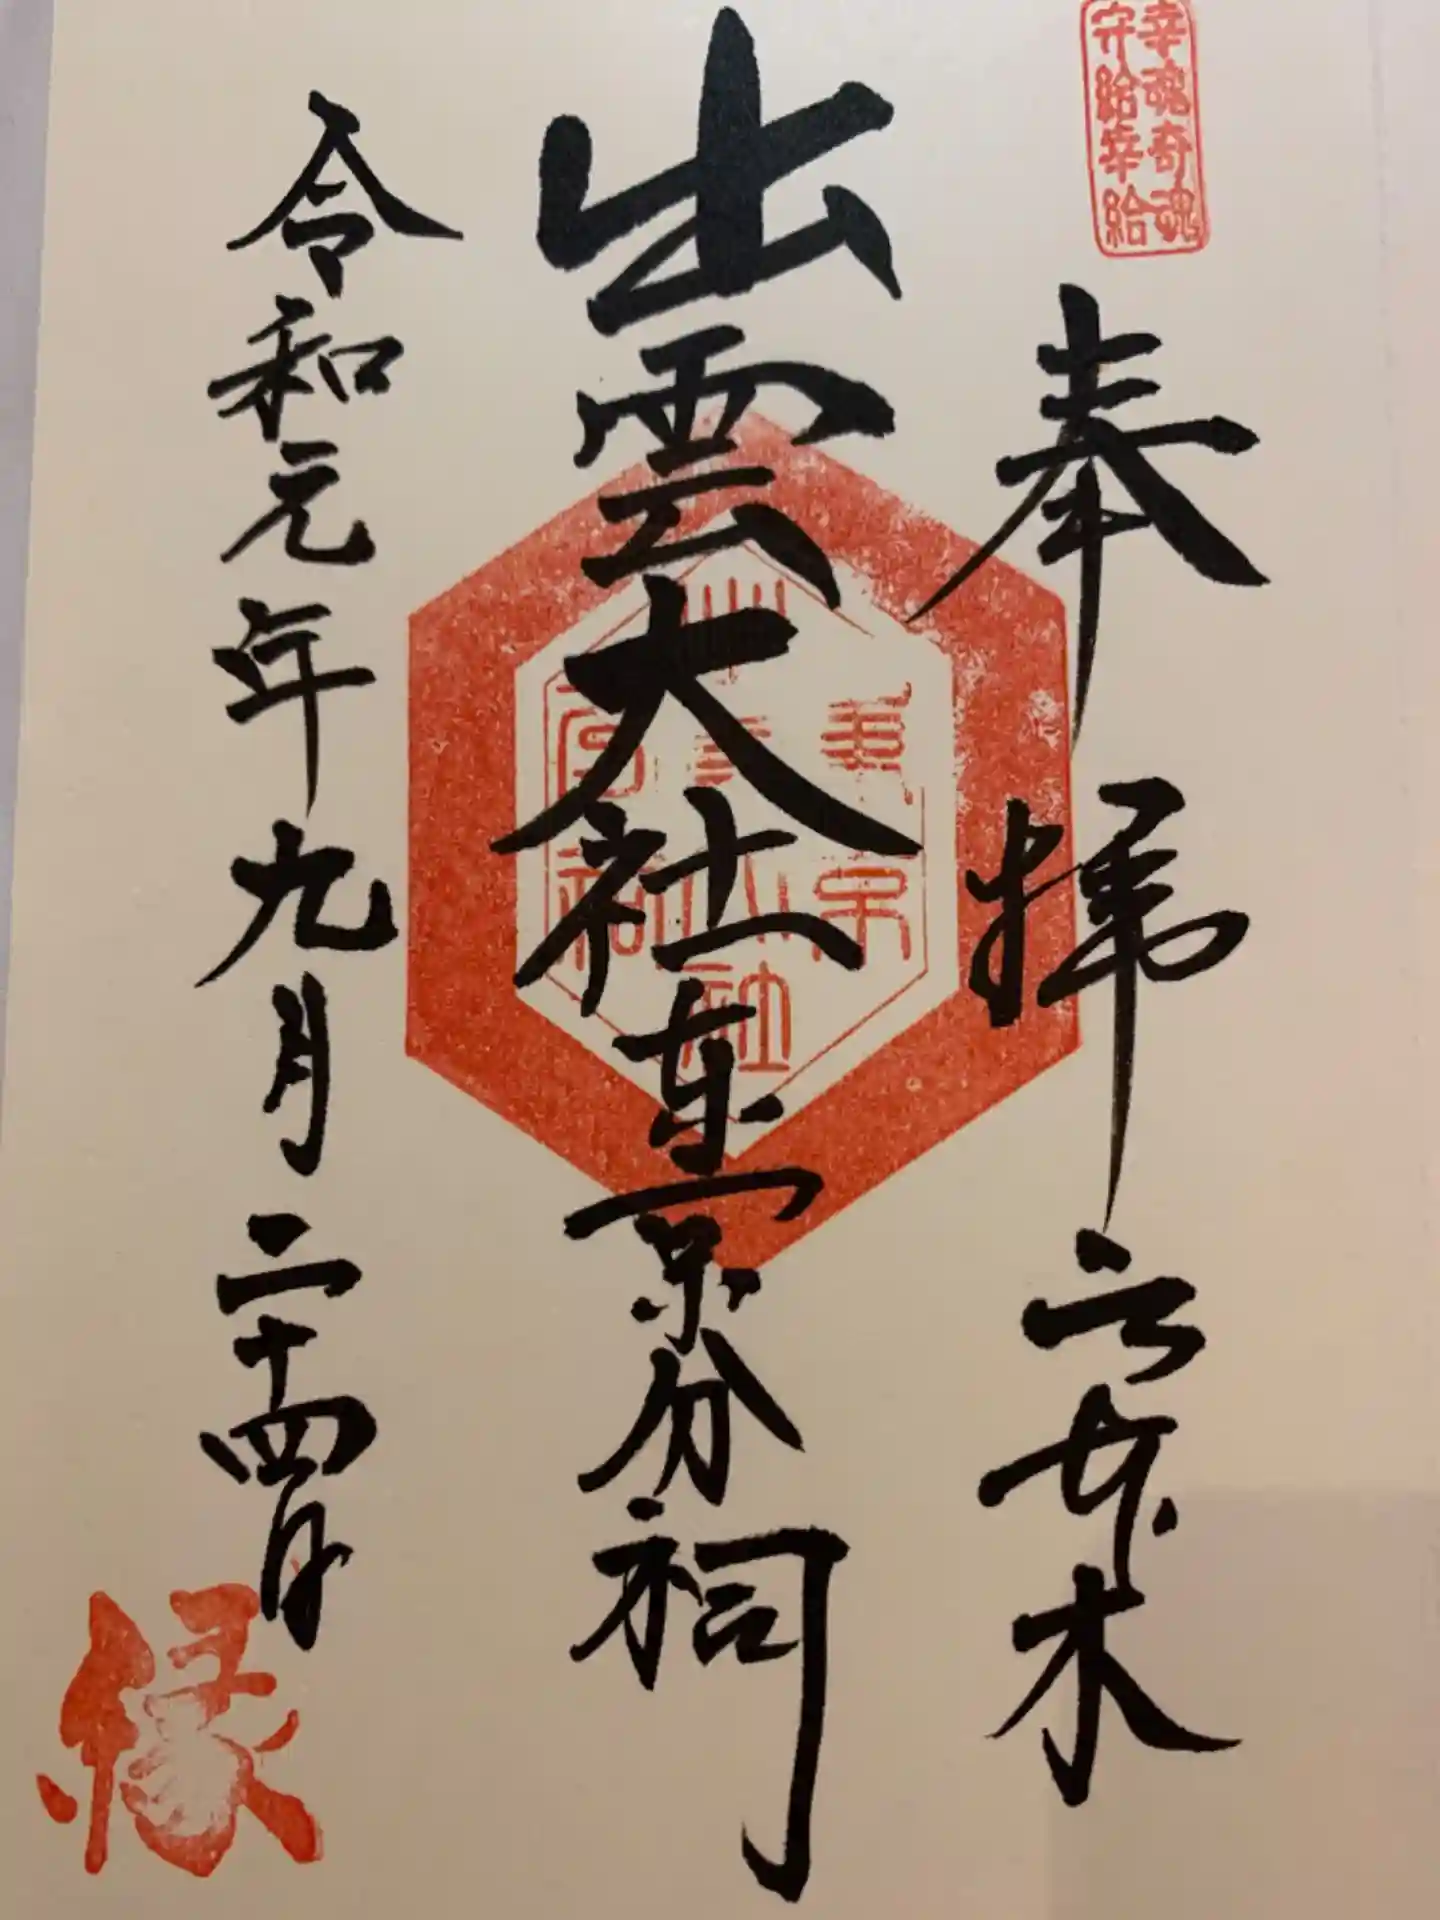 幸魂奇魂
守給幸給
奉拝 六本木
出雲大社東京分祠
令和元年九月二十四日
縁